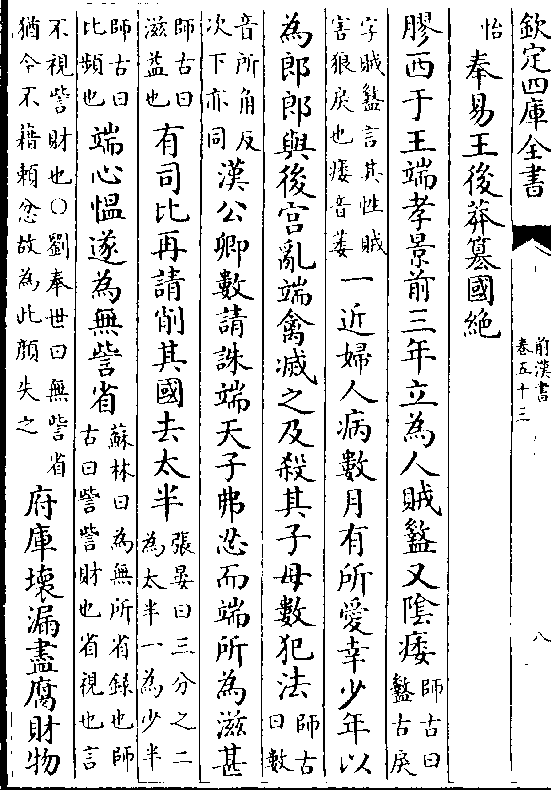 欽定四庫全書
前漢書
卷五十三
八
怡
奉易王後莽篡國絶
膠西于王端孝景前三年立為人賊盭又陰痿
師古曰
盭古戾
字賊盭言其性賊
害狼戾也痿音萎
一近婦人病數月有所愛幸少年以
為郎郎與後宮亂端禽滅之及殺其子母數犯法
師古
曰數
音所角反
次下亦同
漢公卿數請誅端天子弗忍而端所為滋甚
師古曰
滋益也
有司比再請削其國去太半
張晏曰三分之二
為太半一為少半
師古曰
比頻也
端心慍遂為無訾省
蘇林曰為無所省錄也師
古曰訾訾財也省視也言
不視訾財也○劉奉世曰無訾省
猶今不藉賴忿故為此顔失之
府庫壞漏盡腐財物